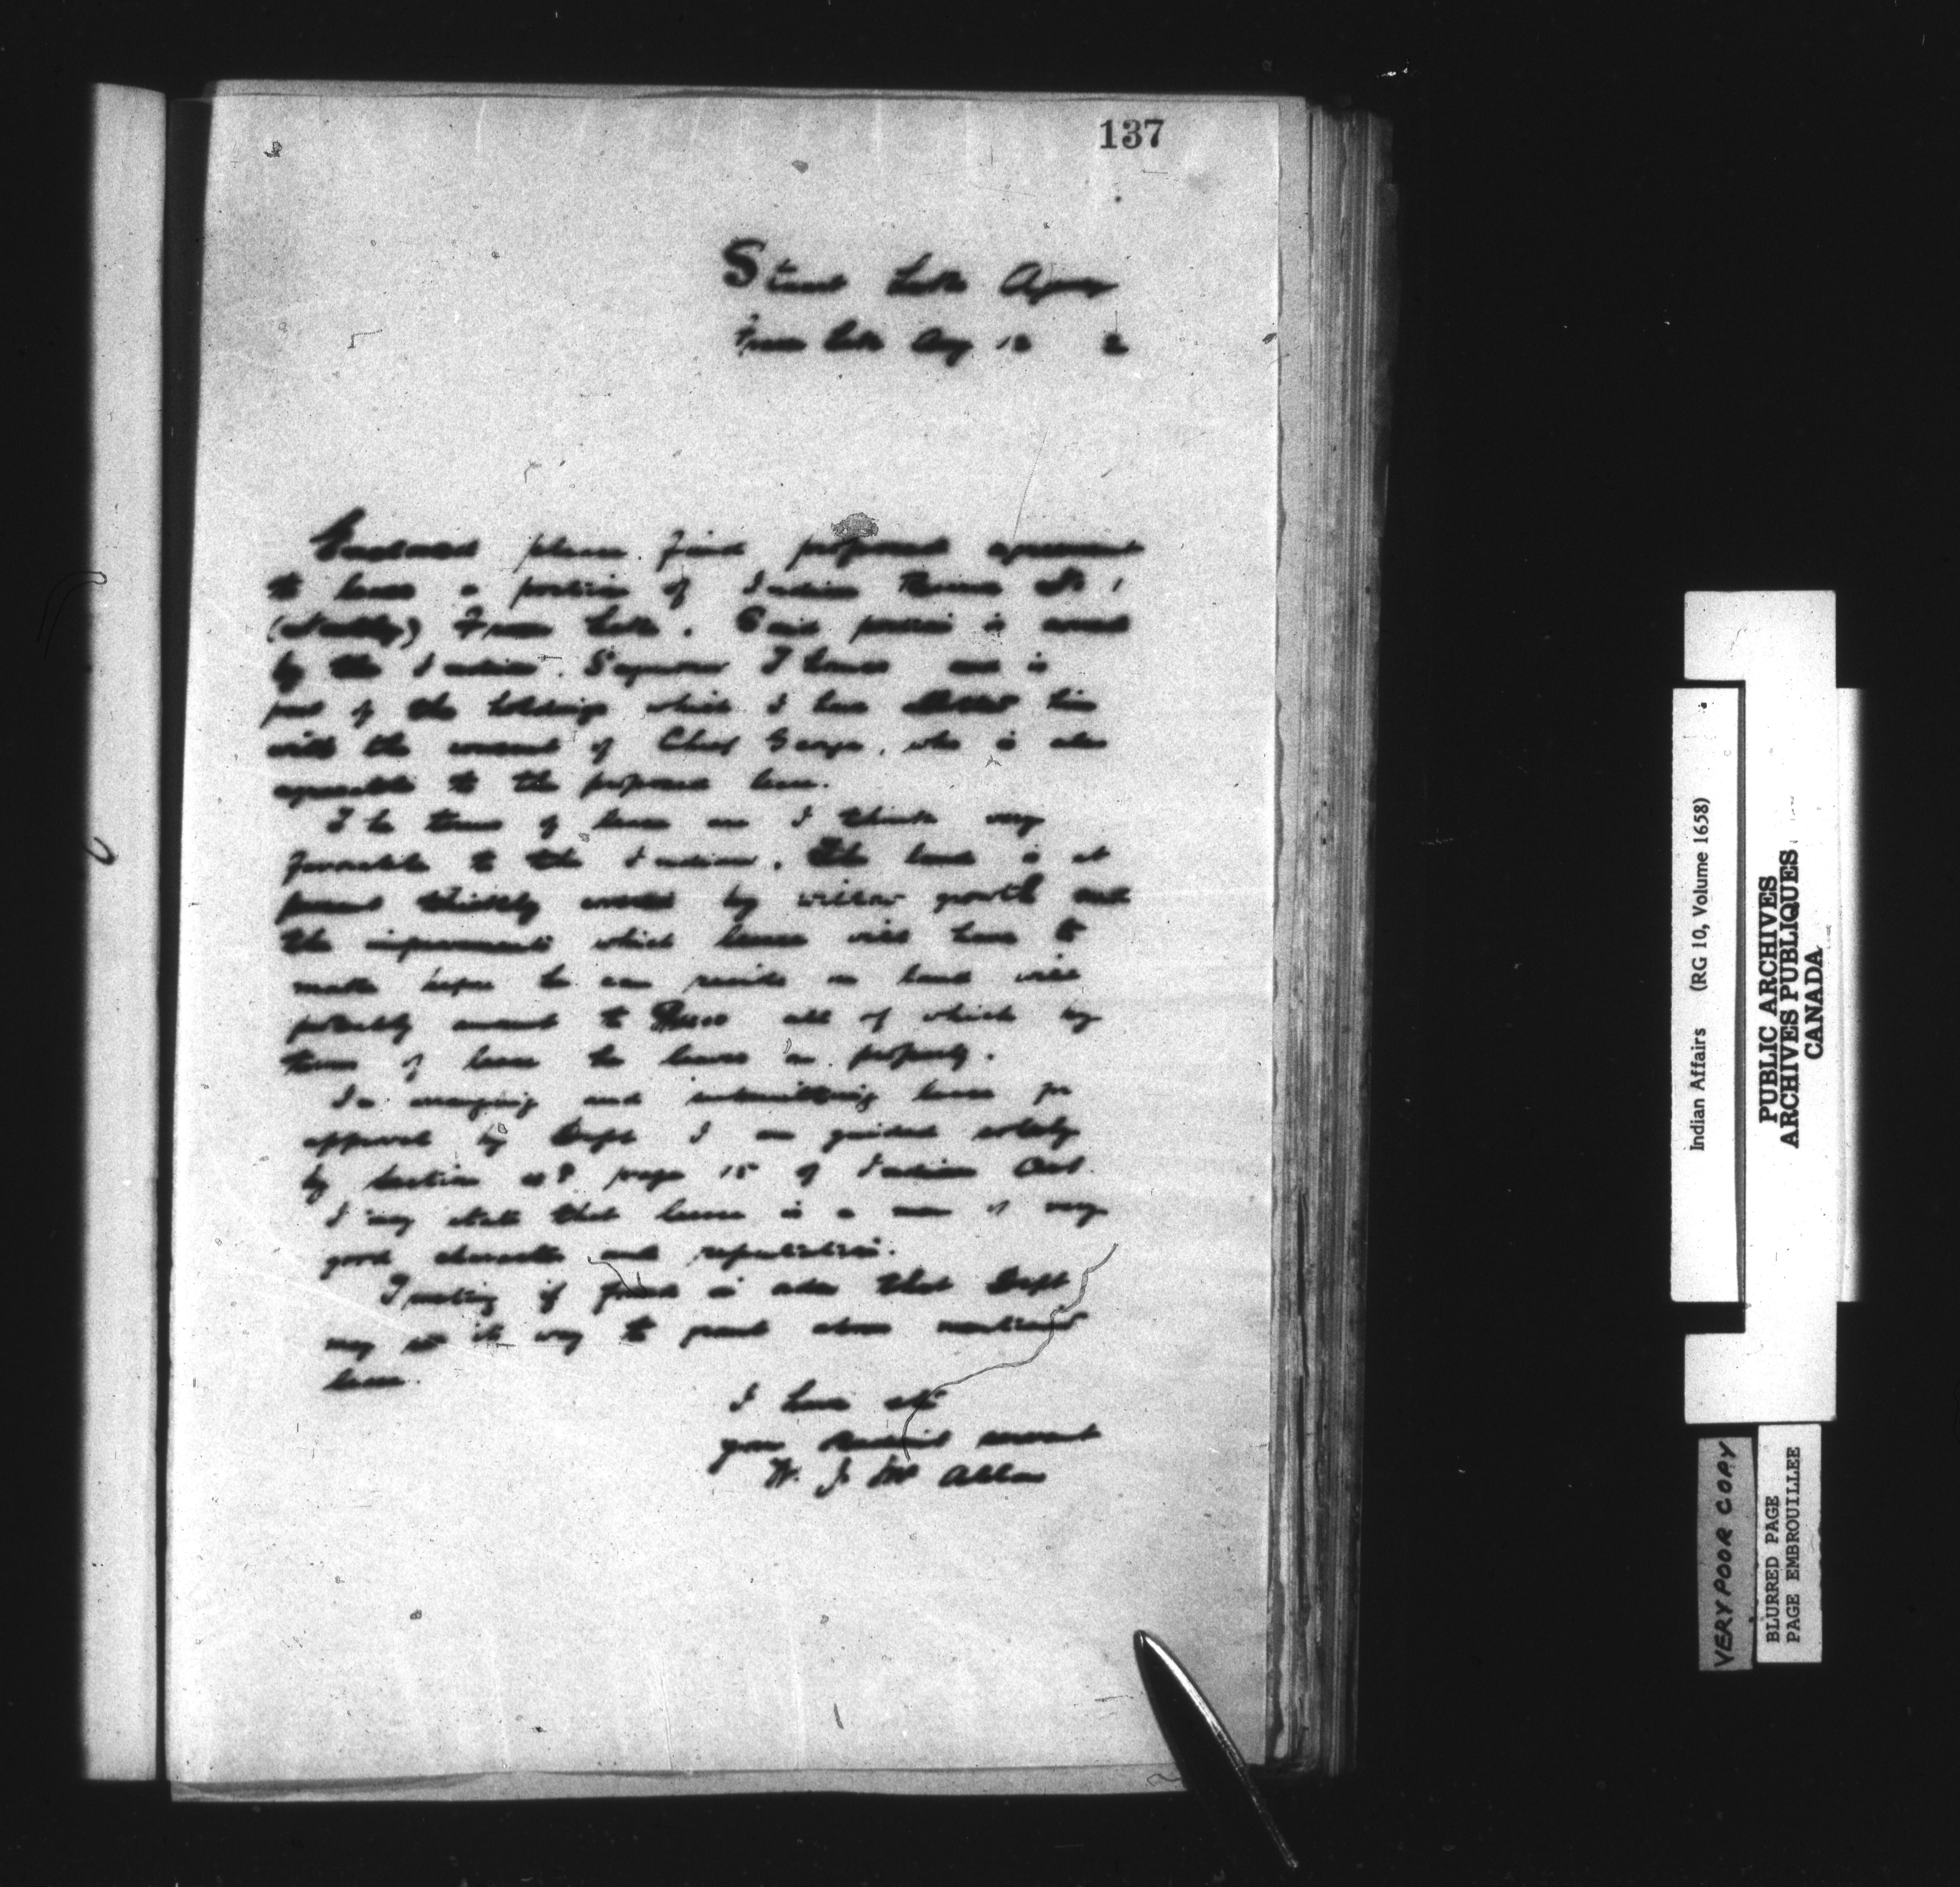 137
Stuart Lake Agency
Fraser Lake Aug 12 2
Enclosed please find proposed agreement
to lease a portion of Indian Reserve No 1
Fraser Lake. Said portion is owned
by the Indian Seymour Thomas and is
part of the holdings which I have allotted him
with the consent of Chief George, who is also
agreeable to the proposed lease.
The terms of lease are I think very
favorable to the Indian. The land is at
present thickly covered by willow growth and
the improvements which lessee will have to
make before he can reside on land will
probably amount to all of which by
terms of lease he leaves on property.
In arranging and submitting lease for
approval by Dept I am guided solely
by section page 15 of Indian Act.
I may state that lessee is a man of very
good character and reputation.
Trusting if found in order that Dept
may see its way to grant above mentioned
lease.
I have etc
your obedient servant
W. J. McAllan
Indian Affairs (RG 10, Volume 1658)
PUBLIC ARCHIVES
ARCHIVES PUBLIQUES
CANADA
VERY POOR COPY
BLURRED PAGE
PAGE EMBROUILLEE